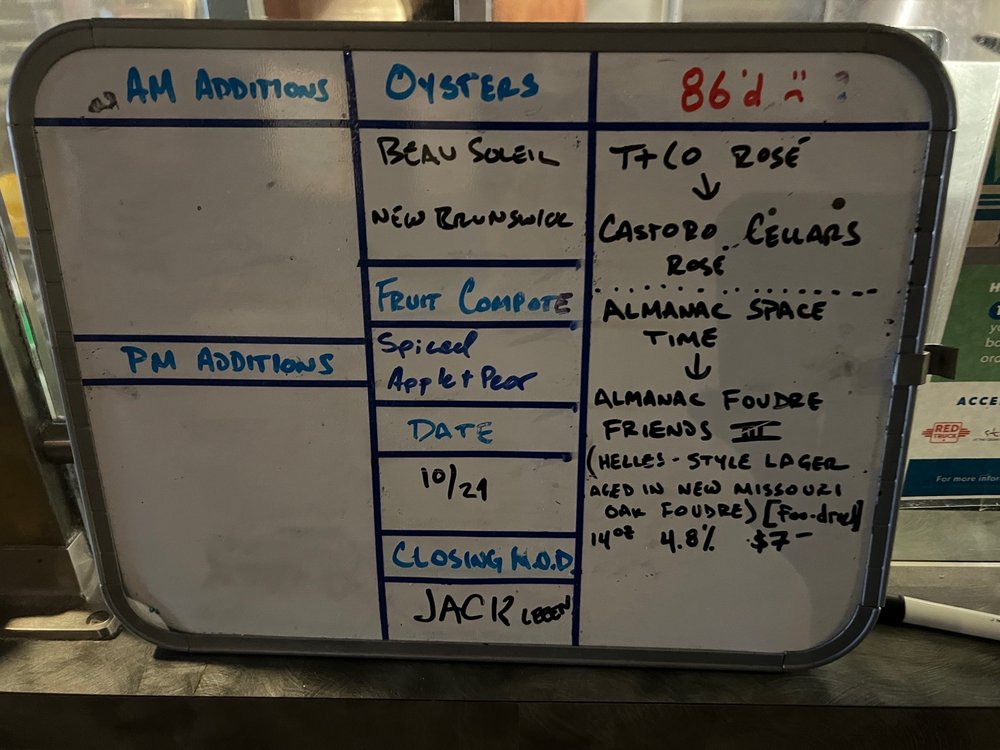 AM ADDITIONS
PM ADDITIONS
OYSTERS
BEAU SOLEIL
NEW BRUNSWICK
FRUIT COMPOTE
Spiced
Apple + Pear
DATE
10/29
CLOSING M.O.D.
JACK
86'd
T+CO ROSÉ
↓
CASTORO CELLARS
ROSÉ
ALMANAC SPACE
TIME
↓
ALMANAC FOUDRE
FRIENDS III
(HELLES-STYLE LAGER
AGED IN NEW MISSOURI
OAK FOUDRE) [Foo-dreh]
14oz 4.8% $7-
ACCE
RED
TRUCK
For more infor